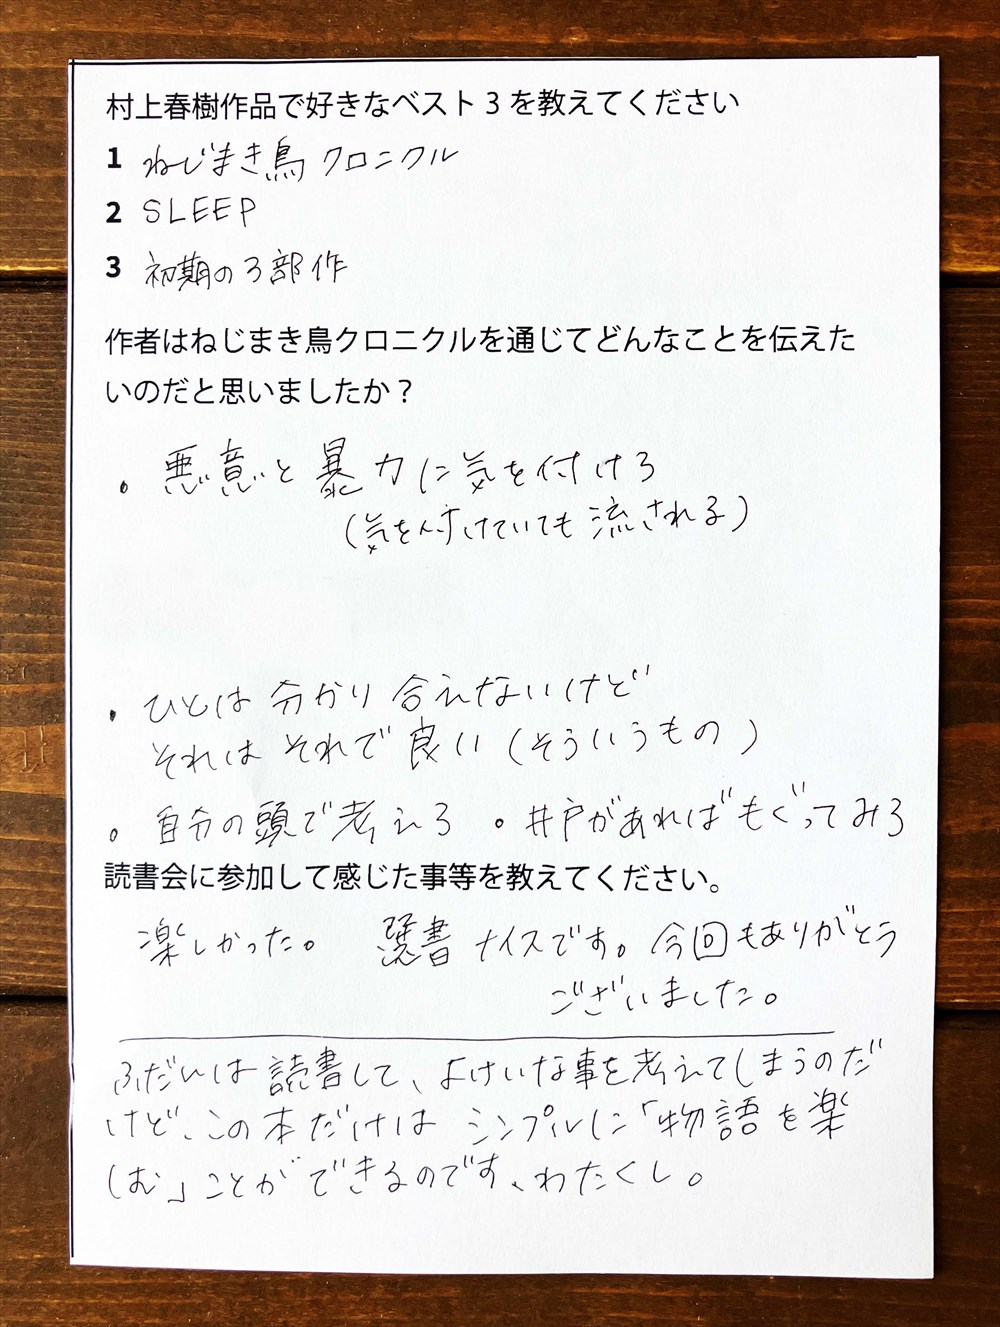 村上春樹作品で好きなベスト3を教えてください
1 ねじまき鳥クロニクル
2 SLEEP
3 初期の3部作
作者はねじまき鳥クロニクルを通じてどんなことを伝えた
いのだと思いましたか？
・悪意と暴力に気を付けろ
(気を付けていても流される)
・ひとは分かり合えないけど
それはそれで良い(そういうもの)
。自分の頭で考えろ 。井戸があればもぐってみろ
読書会に参加して感じた事等を教えてください。
楽しかった。 選書ナイスです。今回もありがとう
ございました。
ふだんは読書して、よけいな事を考えてしまうのだ
けど、この本だけはシンプルに「物語を楽
しむ」ことができるのです、わたくし。